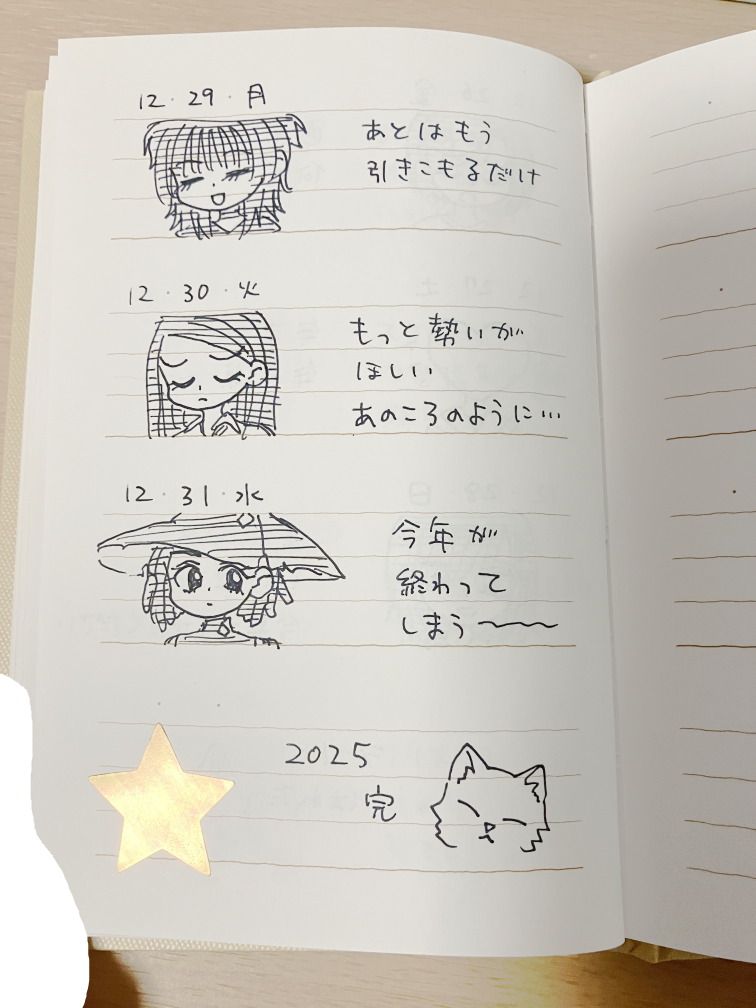 12・29・月
あとはもう
引きこもるだけ
12・30・火
もっと勢いが
ほしい
あのころのように…
12・31・水
今年が
終わって
しまう〜〜
2025
完